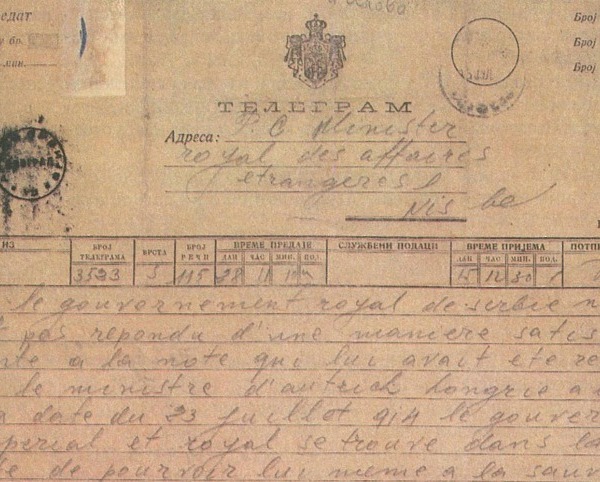 Број
Број
Број
бр.
мин.
ТЕЛЕГРАМ
Адреса:
P. C Minister
royal des affaires
etrangeres
Nis
ИЗ
БРОЈ ТЕЛЕГРАМА
ВРСТА
БРОЈ РЕЧИ
ВРЕМЕ ПРЕДАЈЕ
СЛУЖБЕНИ ПОДАЦИ
ВРЕМЕ ПРИЈЕМА
ДАН ЧАС МИН. ДАН ЧАС МИН.
3523 5 115 28 11 15 12 30
le gouvernement royal de serbie n
pas repondu d'une maniere satis
nte a la note qui lui avait ete re
le ministre d'autrich hongrie a
date du 23 juillot 914 le gouver
perial et royal se trouve dans la
de pourvoir lui meme a la sauv